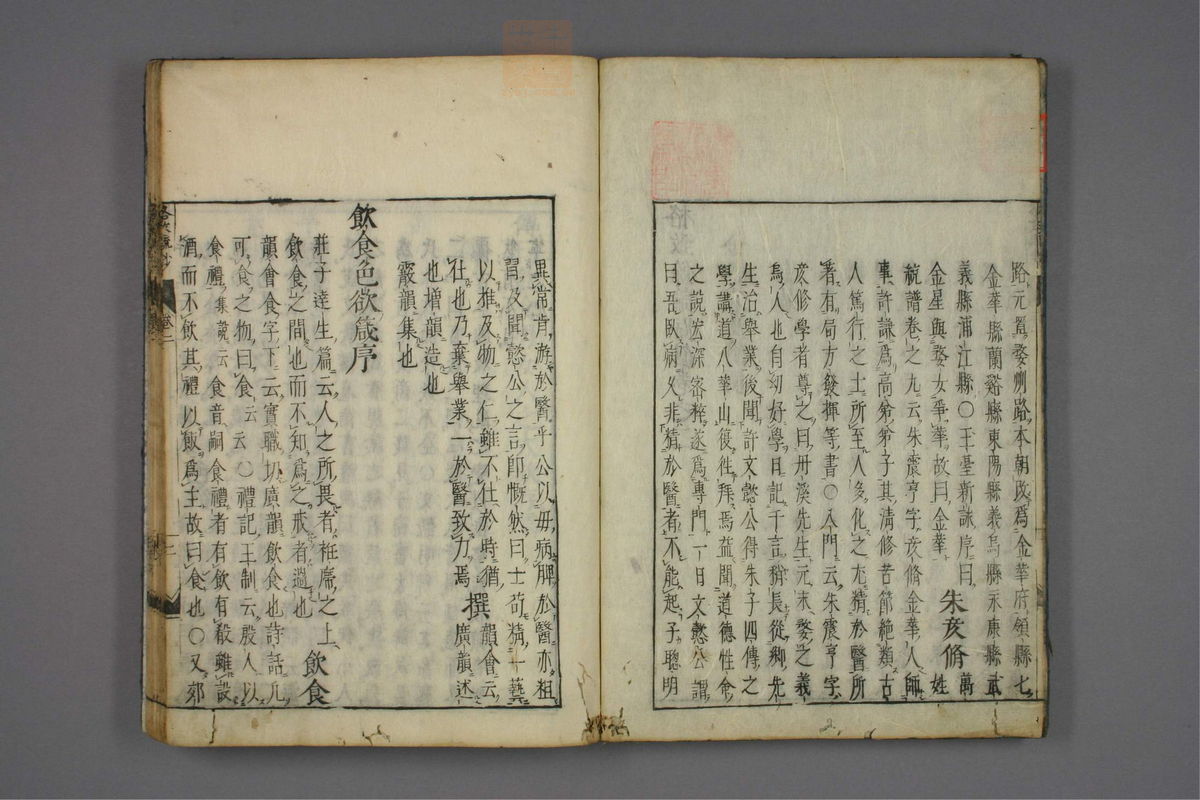 路元置婺州路本朝改爲金華府領縣七
金華縣蘭谿縣東陽縣義烏縣永康縣武
義縣浦江縣〇王臺新詠序曰
金星與婺女爭華故曰金華　朱亥脩姓
統譜卷之九云朱震亨字亥脩金華人師
事許謙爲高弟弟子其淸修苦節絶類古
人篤行之士所至人多化之尤精於醫所
著有局方發揮等書〇入門云朱震亨字
亥修學者尊之曰丹溪先生元末婺之義
烏人也自幼好學日記千言稍長從鄕先
生治舉業後聞許文懿公得朱子四傳之
學講道八華山復徃拜焉益聞道德性命
之說宏深密粹遂爲專門一日文懿公謂
曰吾臥病久非精於醫者不能起子聰明
異常肯游於醫乎公以母病脾於醫亦粗
習及聞懿公之言卽慨然曰士苟精一藝
以推及物之仁雖不仕於時猶
仕也乃棄舉業一於醫致力焉　撰　韻會云
也增韻造也　廣韻述
覈韻集也
飮食色欲箴序
莊子達生篇云人之所畏者袵席之上
飮食之間也而不知爲之戒者過也　飮食
韻會食字下云實職切廣韻飮食也詩話凡
可食之物曰食云云〇禮記王制云殷人以
食禮集說云食音嗣食禮者有飮有殽雖設
酒而不飮其禮以飯爲主故曰食也〇又郊
卷二